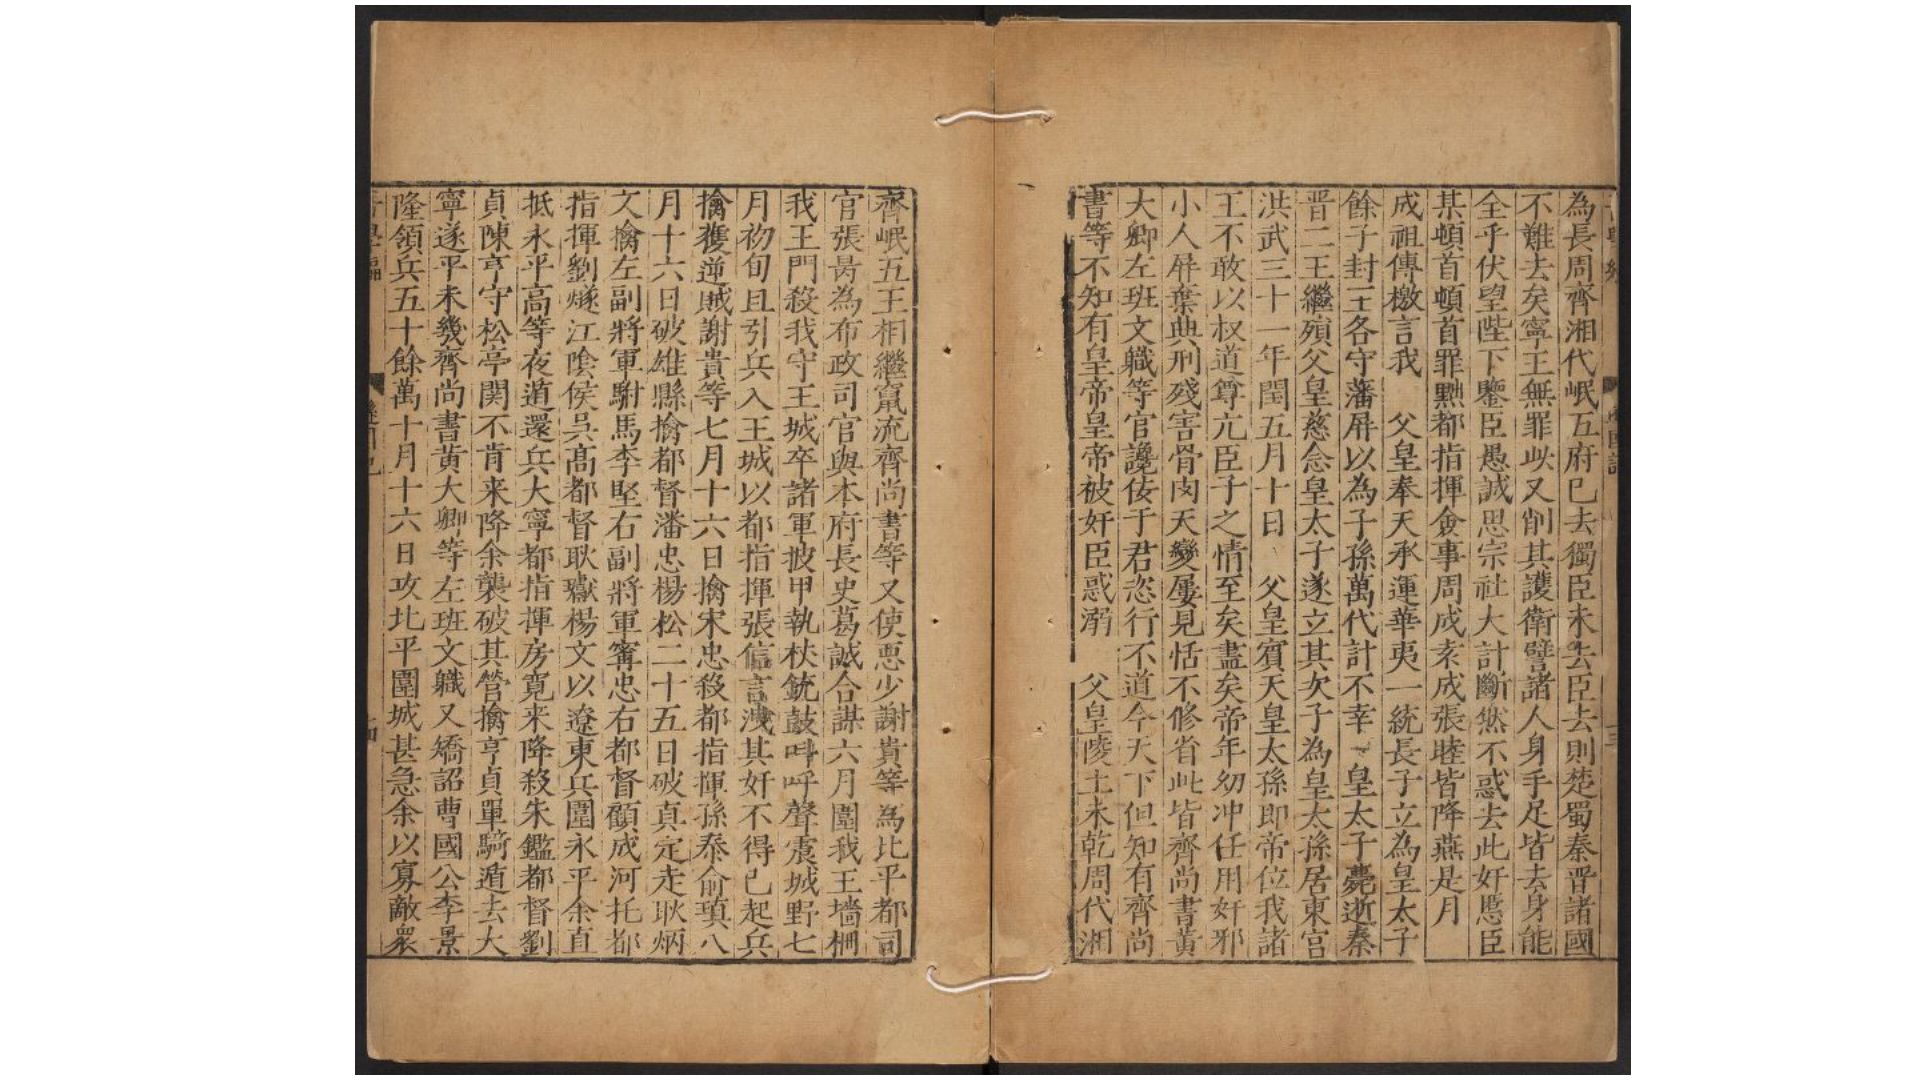 為長周齊湘代岷五府已去獨臣未去臣去則楚蜀秦晋諸國
不難去矣寧王無罪此又削其護衛譬諸人身手足皆去身能
全乎伏望陛下鑒臣愚誠思宗社大計斷然不惑去此奸慝臣
某頓首頓首罪黜都指揮僉事周成袁成張睦皆降燕是月
成祖傳檄言我 父皇奉天承運華夷一統長子立為皇太子
餘子封王各守藩屏以為子孫萬代計不幸 皇太子薨逝秦
晋二王繼殞父皇慈念皇太子遂立其次子為皇太孫居東宮
洪武三十一年閏五月十日 父皇賓天皇太孫即帝位我諸
王不敢以叔道尊亢臣子之情至矣盡矣帝年幼冲任用奸邪
小人屏棄典刑殘害骨肉天變屢見恬不修省此皆齊尚書黃
大卿左班文職等官讒佞于君恣行不道今天下但知有齊尚
書等不知有皇帝皇帝被奸臣惑溺 父皇陵土未乾周代湘
齊岷五王相繼竄流齊尚書等又使惡少謝貴等為北平都司
官張昺為布政司官與本府長史葛誠合謀六月圍我王墻柵
我王門殺我守王城卒諸軍披甲執杖銃鼓呌呼聲震城野七
月初旬且引兵入王城以都指揮張信言洩其奸不得已起兵
擒獲逆賊謝貴等七月十六日擒宋忠殺都指揮孫泰俞瑱八
月十六日破雄縣擒都督潘忠楊松二十五日破真定走耿炳
文擒左副將軍駙馬李堅右副將軍甯忠右都督顧成河托都
指揮劉燧江陰侯吳髙都督耿瓛楊文以遼東兵圍永平余直
抵永平高等夜遁還兵大寧都指揮房寛来降殺朱鑑都督劉
貞陳亨守松亭関不肯来降余襲破其營擒亨貞單騎遁去大
寧遂平未幾齊尚書黃大卿等左班文職又矯詔曹國公李景
隆領兵五十餘萬十月十六日攻北平圍城甚急余以寡敵衆